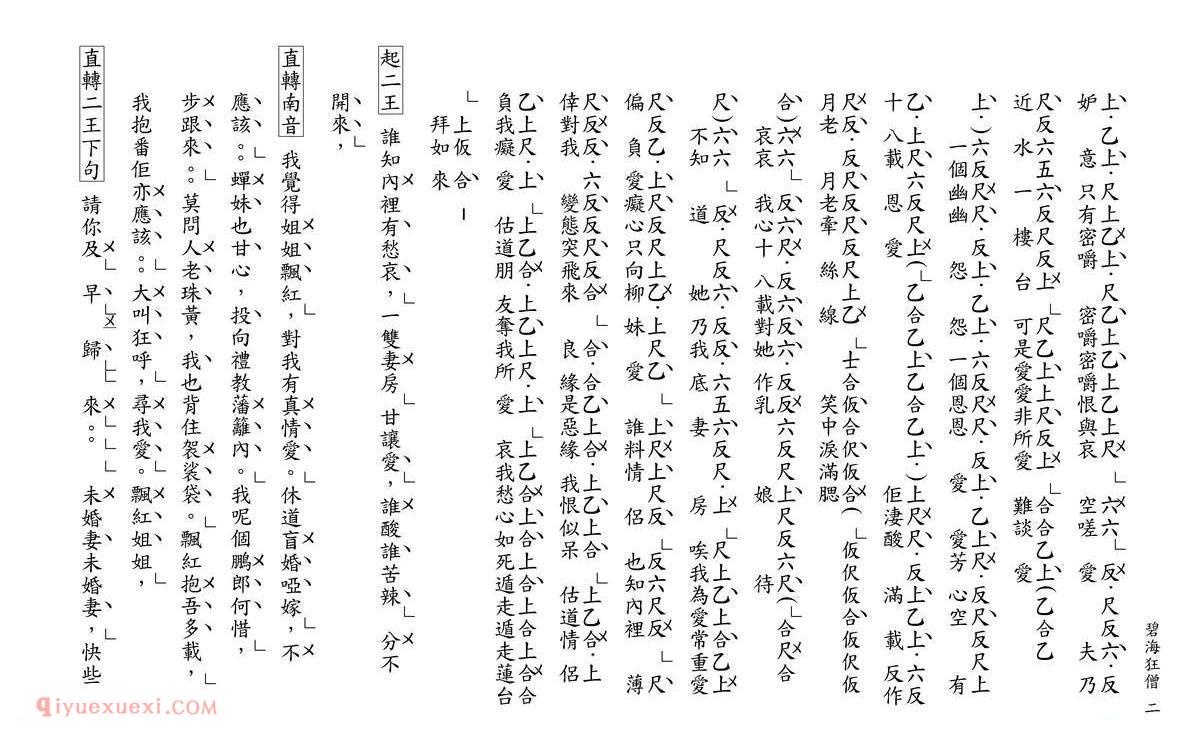 碧海狂僧 二
上·乙上·尺上乙上·尺乙上乙上乙上尺 六六 反·尺反六·反
妒 意 只有密嚼 密嚼密嚼恨與哀 空嗟 愛 夫乃
尺反六五六反尺反上 尺乙上上尺反上 合合乙上(乙合乙
近 水 一 樓 台 可是愛愛非所愛 難談 愛
上·)六反尺尺·反上·乙上·六反尺尺·反上·乙上尺·反尺反尺上
一個幽幽 怨 怨 一個恩恩 愛 愛芳 心空 有
乙·上尺六反尺上(乙合乙上乙合乙上·)上尺尺·反上乙上·六反
十 八載 恩 愛 佢淒酸 滿 載 反作
尺反·反尺反尺反尺上乙 士合仮合伬仮合(仮伬仮合仮伬仮
月老 月老牽 絲 線 笑中淚滿腮
合)六六 反六尺·反六反六·反反六反尺上尺反六尺(合尺合
哀哀 我心十 八載對她 作乳 娘 待
尺)六六 反·尺反六·反反·六五六反尺·上 尺上乙上合乙上
不知 道 她 乃我 底 妻 房 唉我為愛常重愛
尺反乙·上尺反尺上乙·上尺乙 上尺上尺反 反六尺反 尺
偏 負 愛癡心只向柳 妹 愛 誰料情 侶 也知內裡 薄
尺反反·六反反尺反合 合·合乙上合·上乙上合 上乙合·上
倖對我 變態突飛來 良 緣是惡緣 我恨似呆 估道情 侶
乙上尺·上 上乙合·上乙上尺·上 上乙合上合上合上合上合合
負我癡 愛 估道朋 友奪我所 愛 哀我愁心如死遁走遁走蓮台
上仮合 －
拜如來
起二王 誰知內裡有愁哀，一雙妻房 甘讓愛，誰酸誰苦辣 分不
開來，
直轉南音 我覺得姐姐飄紅，對我有真情愛。休道盲婚啞嫁，不
應該。。蟬妹也甘心，投向禮教藩籬內。我呢個鵬郎何惜，
步跟來。。莫問人老珠黃，我也背住袈裟袋。飄紅抱吾多載，
我抱番佢亦應該。。大叫狂呼，尋我愛。飄紅姐姐，
直轉二王下句 請你及 早 歸 來。。 未婚妻未婚妻，快些
qiyuexuexi.COM